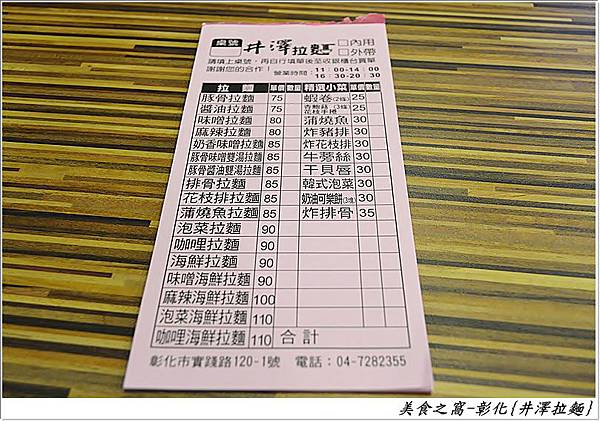 桌號 井澤拉麵 □內用
□外帶
請填上桌號，再自行填單後至收銀櫃台買單
謝謝您的合作！ 營業時間：11：00-14：00
16：30-20：30
拉麵 單價 數量 精選小菜 單價 數量
豚骨拉麵 75 蝦卷(2條) 25
醬油拉麵 75 花枝丸捲 25
味噌拉麵 80 蒲燒魚 30
麻辣拉麵 80 炸豬排 30
奶香味噌拉麵 85 炸花枝排 30
豚骨味噌雙湯拉麵 85 牛蒡絲 30
豚骨醬油雙湯拉麵 85 干貝唇 30
排骨拉麵 85 韓式泡菜 30
花枝排拉麵 85 奶油可樂餅 30
蒲燒魚拉麵 85 炸排骨 35
泡菜拉麵 90
咖哩拉麵 90
海鮮拉麵 90
味噌海鮮拉麵 90
麻辣海鮮拉麵 100
泡菜海鮮拉麵 110
咖哩海鮮拉麵 110 合計
彰化市實踐路120-1號 電話：04-7282355
美食之窩-彰化{井澤拉麵}